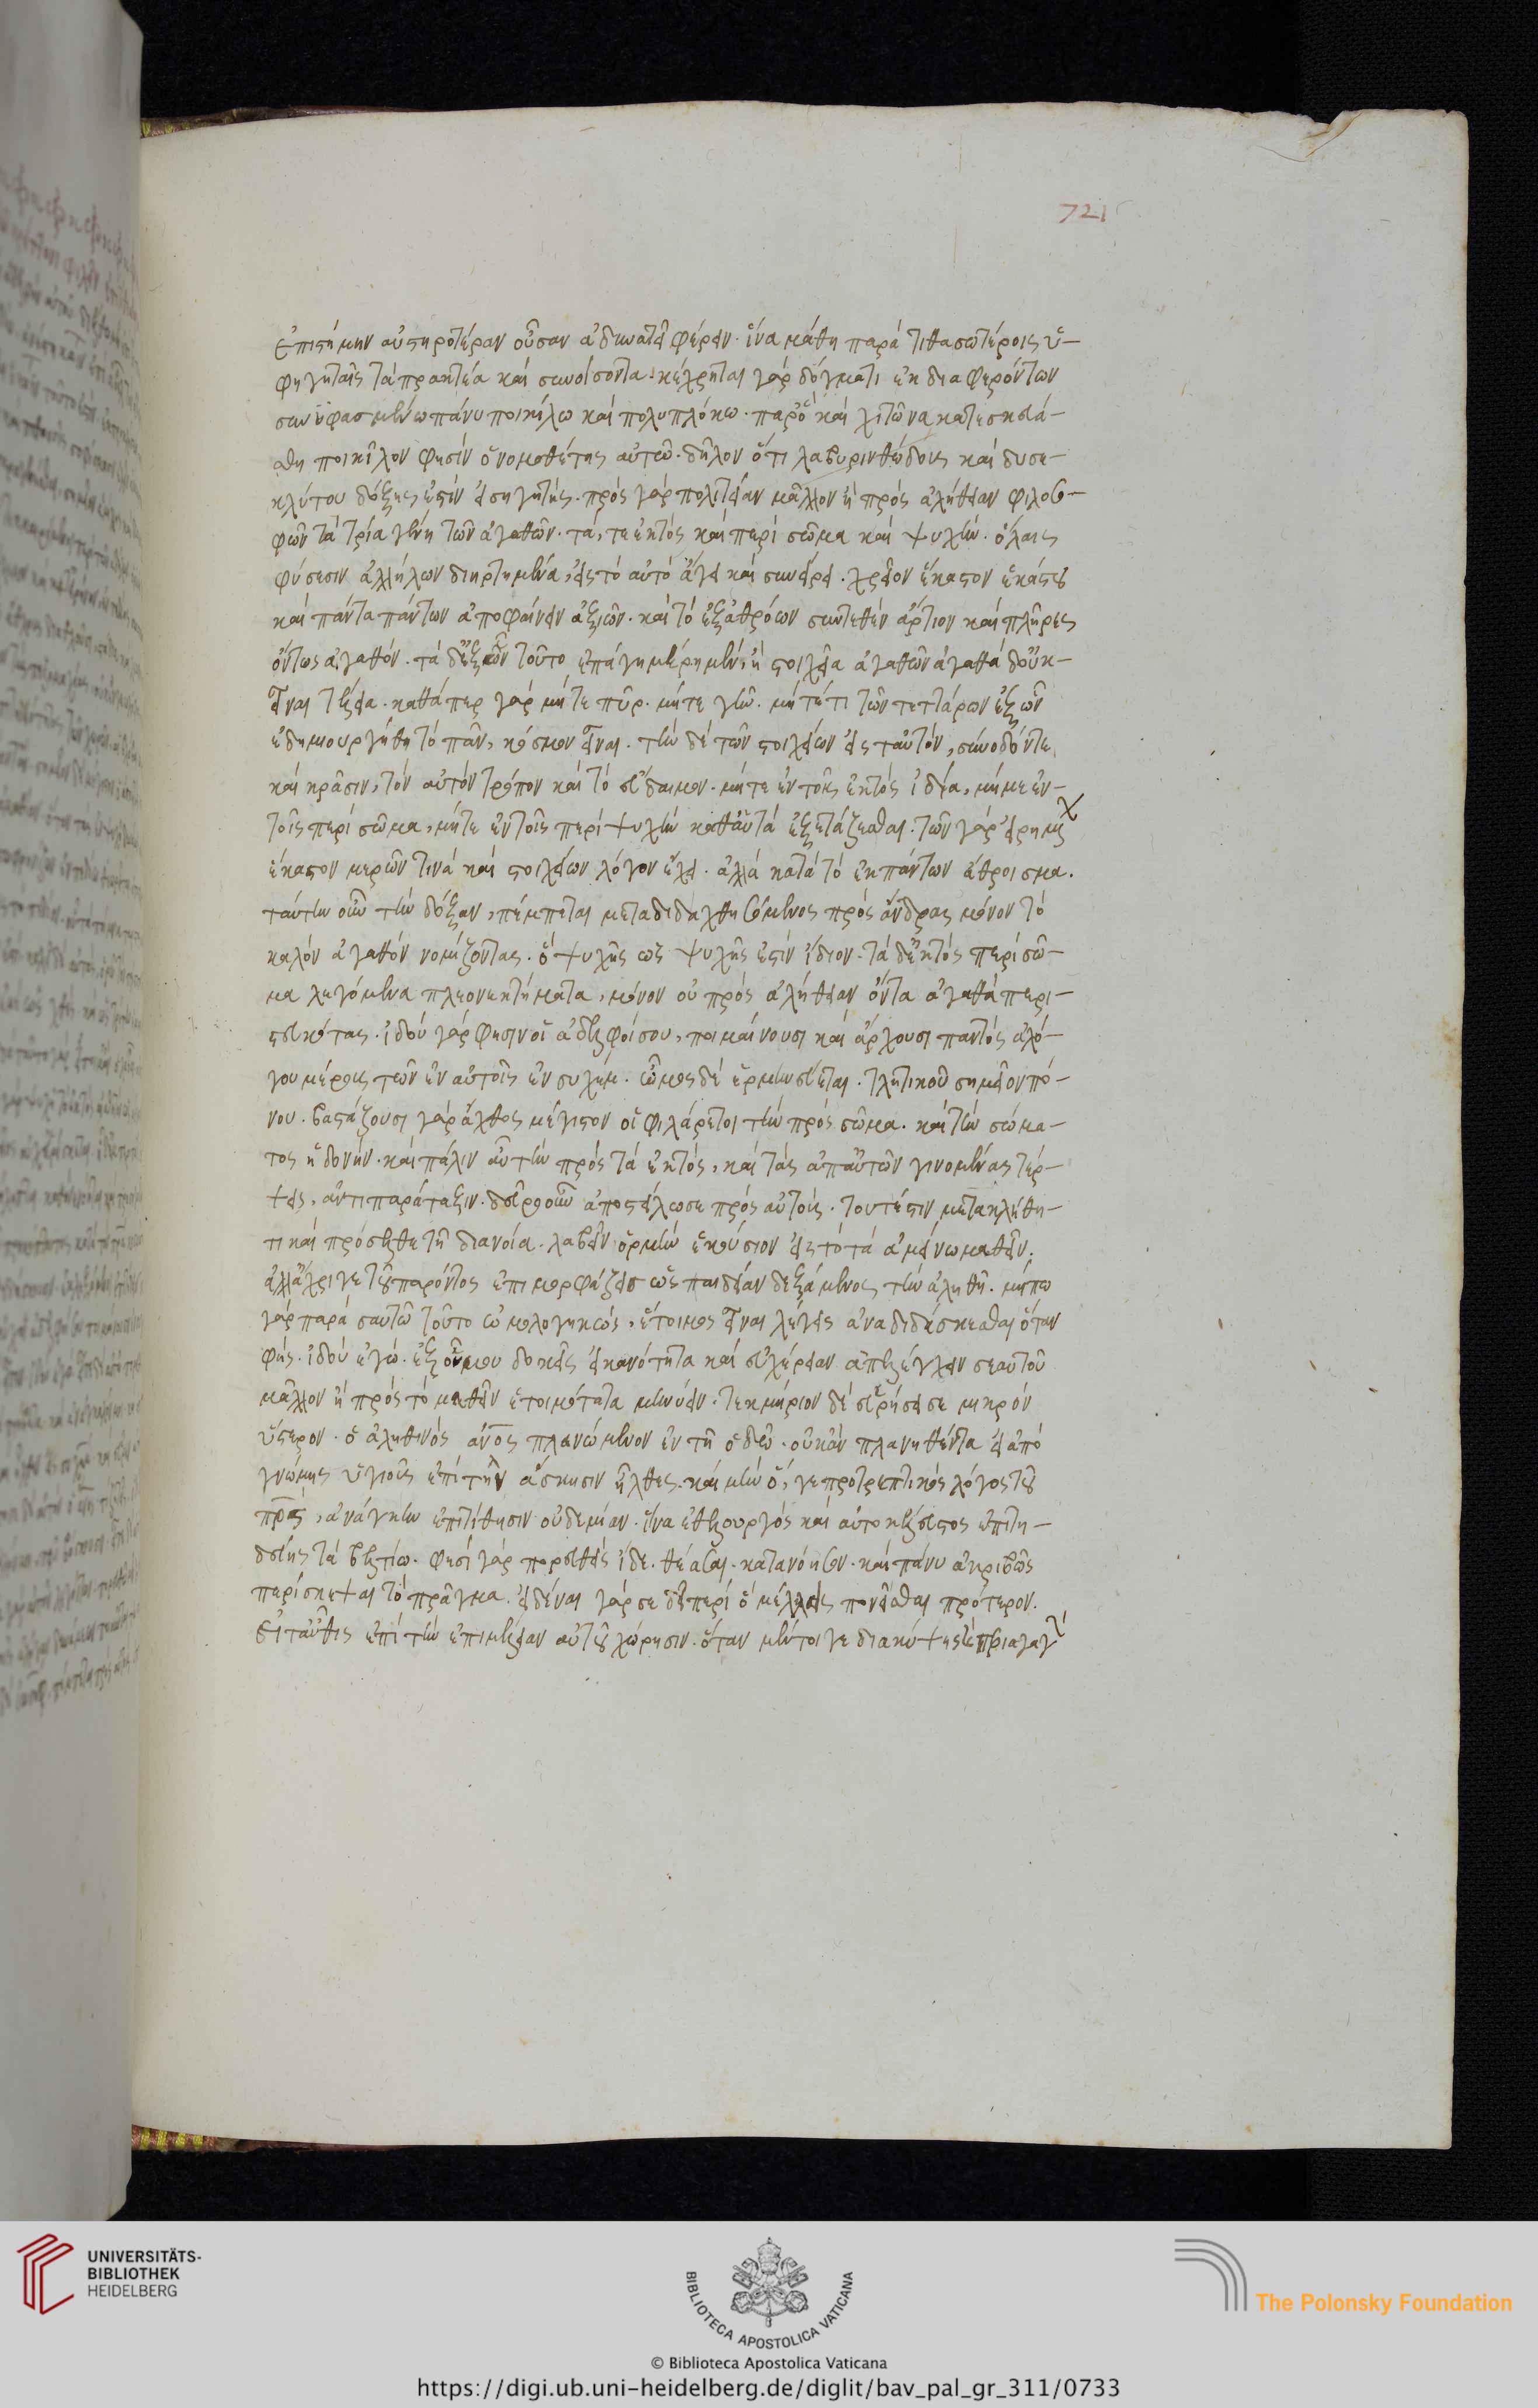 721
ἐπιστήμην αὐστηροτέραν οὖσαν ἀδυνατεῖ φέρειν· ἵνα μάθη παρὰ τιθασωτέροις ὑ-
φηγηταῖς τὰ πρακτέα καὶ συνοίσοντα· κέχρηται γὰρ δόγματι ἐκ διαφερόντων
συνυφασμένω πάνυ ποικίλω καὶ πολυπλόκω· παρὸ καὶ χιτῶνα κατεσκευά-
σθη ποικίλον φησὶν ὁ νομοθέτης αὐτῶ· δῆλον ὅτι λαβυρινθώδους καὶ δυσε-
κλύτου δόξης ἐστὶν εἰσηγητής· πρὸς γὰρ πολιτείαν μᾶλλον ἢ πρὸς ἀλήθειαν φιλοσο-
φῶν τὰ τρία γένη τῶν ἀγαθῶν· τά, τε ἐκτὸς καὶ περὶ σῶμα καὶ ψυχήν· ὅλαις
φύσεσιν ἀλλήλων διηρτημένα, εἰς τὸ αὐτὸ ἄγει καὶ συνείρει· χρεῖον ἕκαστον ἑκάστου
καὶ πάντα πάντων ἀποφαίνειν ἀξιῶν· καὶ τὸ ἐξ ἀθρόων συντεθὲν ἄρτιον καὶ πλῆρες
ὄντως ἀγαθόν· τὰ δ' ἐξ ὧν τοῦτο ἐπάγη μέρη μὲν, ἢ στοιχεῖα ἀγαθῶν ἀγαθὰ δ' οὐκ
εἶναι τέλεια· καθάπερ γὰρ μήτε πῦρ· μήτε γῆν· μήτέ τι τῶν τεττάρων ἐξ ὧν
ἐδημιουργήθη τὸ πᾶν, κόσμον εἶναι· τὴν δὲ τῶν στοιχείων εἰς ταὐτὸν, σύνοδόν τε
καὶ κρᾶσιν, τὸν αὐτὸν τρόπον καὶ τὸ εὔδαιμον· μήτε ἐν τοῖς ἐκτὸς ἰδία, μήμε ἐν
τοῖς περὶ σῶμα, μήτε ἐν τοῖς περὶ ψυχὴν καθ' αὑτὰ ἐξετάζεσθαι· τῶν γὰρ εἰρημένων
ἕκαστον μερῶν τινὰ καὶ στοιχείων λόγον ἔχει· ἀλλὰ κατὰ τὸ ἐκ πάντων ἄθροισμα·
ταύτην οὖν τὴν δόξαν, πέμπεται μεταδιδαχθησόμενος πρὸς ἄνδρας μόνον τὸ
καλὸν ἀγαθὸν νομίζοντας· ὃ ψυχῆς ὡς ψυχῆς ἐστὶν ἴδιον· τὰ δ' ἐκτὸς περὶ σῶ-
μα λεγόμενα πλεονεκτήματα, μόνον οὐ πρὸς ἀλήθειαν ὄντα ἀγαθὰ πεπι-
στευκότας· ἰδοὺ γὰρ φησιν οἱ ἀδελφοί σου, ποιμαίνουσι καὶ ἄρχουσι παντὸς ἀλό-
γου μέρους τῶν ἐν αὐτοῖς ἐν συχέμ· ὦμος δὲ ἑρμηνεύεται· τλητικοῦ σημεῖον πό-
νου· βαστάζουσι γὰρ ἄχθος μέγιστον οἱ φιλάρετοι τὴν πρὸς σῶμα· καὶ τὴν σώμα-
τος ἡδονήν· καὶ πάλιν αὖ τὴν πρὸς τὰ ἐκτός, καὶ τὰς ἀπ' αὐτῶν γινομένας τέρ-
ψεις, ἀντιπαράταξιν· δεῦρο οὖν ἀποστείλω σε πρὸς αὐτούς· τουτέστιν μετακλήθη-
τι καὶ πρόσελθε τῆ διανοία· λαβεῖν ὁρμὴν ἑκούσιον εἰς τὸ τὰ ἀμείνω μαθεῖν·
ἀλλ' ἄχρι γε τοῦ παρόντος ἐπιμορφάζεις ὡς παιδείαν δεξάμενος τὴν ἀληθῆ· μήπω
γὰρ παρὰ σαυτῶ τοῦτο ὡμολογηκώς, ἕτοιμος εἶναι λέγεις ἀναδιδάσκεσθαι ὅταν
φῆς· ἰδοὺ ἐγώ· ἐξ οὗ μου δοκεῖς εἰκαιότητα καὶ εὐχέρειαν ἀπελέγχειν σεαυτοῦ
μᾶλλον ἢ πρὸς τὸ μαθεῖν ἑτοιμότητα μηνύειν· τεκμήριον δὲ εὑρήσει σε μικρὸν
ὕστερον· ὁ ἀληθινὸς ἄνος πλανώμενον ἐν τῆ ὁδῶ· οὐκ ἂν πλανηθέντα εἰ ἀπὸ
γνώμης ὑγιοῦς ἐπὶ τὴν ἄσκησιν ἦλθες· καὶ μὴν ὅ, γε προτρεπτικὸς λόγος τοῦ
πρς, ἀνάγκην ἐπιτίθησιν οὐδεμίαν· ἵνα ἐθελουργὸς καὶ αὐτοκέλευστος ἐπιτη-
δεύης τὰ βελτίω· φησὶ γὰρ πορευθεὶς ἴδε· θέασαι· κατανόησον· καὶ πάνυ ἀκριβῶς
περίσκεψαι τὸ πρᾶγμα· εἰδέναι γάρ σε δεῖ περὶ ὃ μέλλεις πονεῖσθαι πρότερον·
εἶτ' αὖθις ἐπὶ τὴν ἐπιμέλειαν αὐτοῦ χώρησιν· ὅταν μέντοι γε διακύψης
UNIVERSITÄTS-
BIBLIOTHEK
HEIDELBERG
BIBLIOTECA APOSTOLICA VATICANA
© Biblioteca Apostolica Vaticana
The Polonsky Foundation
https://digi.ub.uni-heidelberg.de/diglit/bav_pal_gr_311/0733